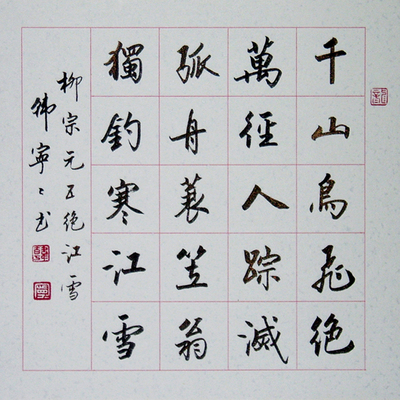 千山鳥飛絶
萬徑人踪滅
孤舟蓑笠翁
獨釣寒江雪
柳宗元五绝江雪
寧〻书